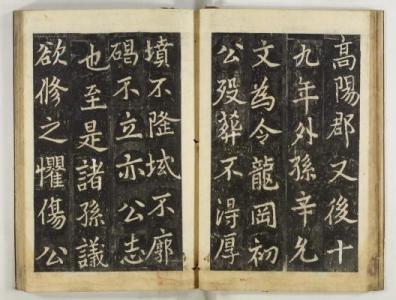 高陽郡又後十
九年外孫辛允
文為令龍岡初
公歿葬不得厚
墳不隆域不廓
碣不立亦公志
也至是諸孫議
欲修之懼傷公